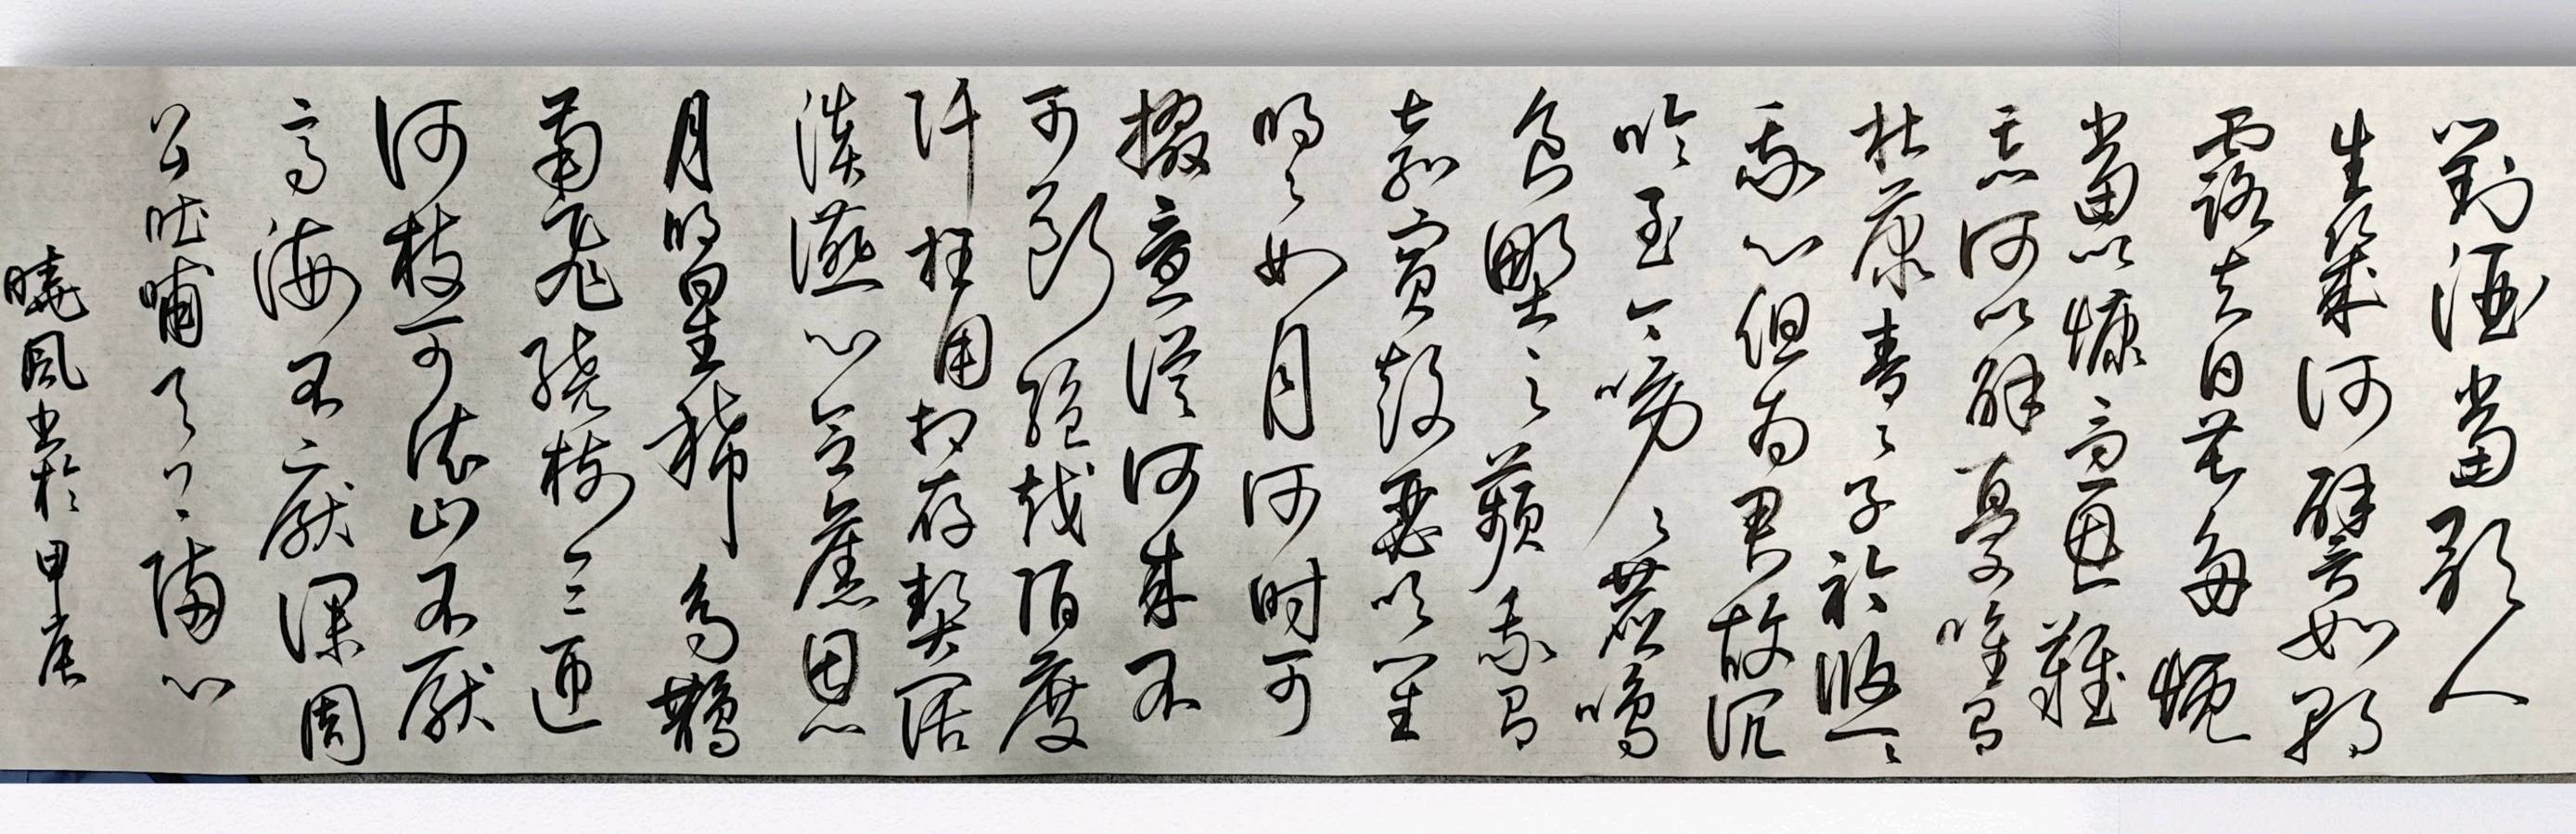 對酒當歌人
生幾何譬如朝
露去日苦多慨
當以慷憂思難
忘何以解憂唯有
杜康青々子衿悠々
我心但為君故沉
吟至今呦々鹿鳴
食野之蘋我有
嘉賓鼓瑟吹笙
明々如月何时可
掇憂從何來不
可斷絕越陌度
阡枉用相存契闊
談讌心念舊恩
月明星稀烏鵲
南飛繞樹三匝
何枝可依山不厭
高海不厭深周
公吐哺天下歸心
曉風書於甲辰